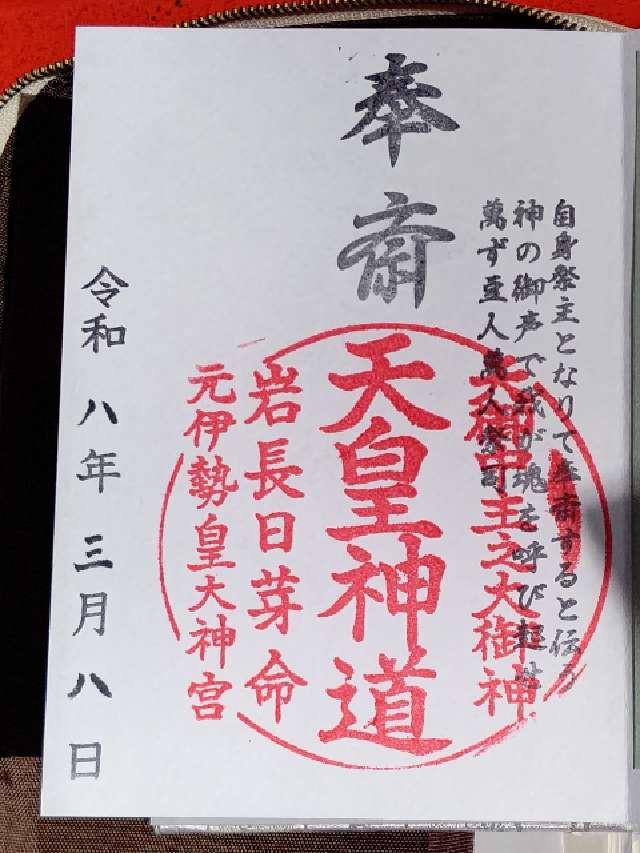 奉斎
自身祭主となりて奉斎すると伝う
神の御声で我が魂を呼び起せ
萬ず豆人萬人祭司
天御中主之大御神
天皇神道
岩長日芽命
元伊勢皇大神宮
令和八年三月八日